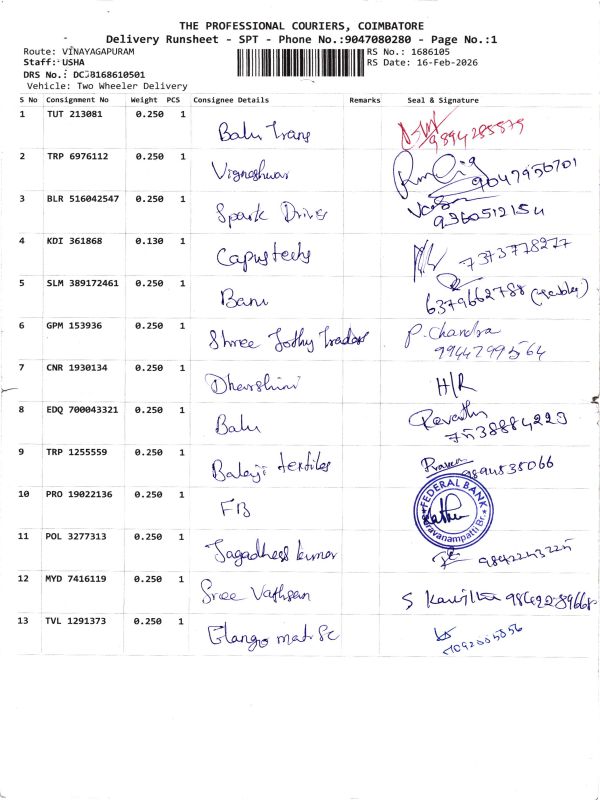 THE PROFESSIONAL COURIERS, COIMBATORE
Delivery Runsheet - SPT - Phone No.:9047080280 - Page No.:1
Route: VINAYAGAPURAM RS No.: 1686105
Staff: USHA RS Date: 16-Feb-2026
DRS No.: DCJB168610501
Vehicle: Two Wheeler Delivery
S No Consignment No Weight PCS Consignee Details Remarks Seal & Signature
1 TUT 213081 0.250 1 Balu Trans
9894285579
2 TRP 6976112 0.250 1 Vigneshwar
9047950701
3 BLR 516042547 0.250 1 Spark Drives
9360512154
4 KDI 361868 0.130 1 Capustechs 7373778277
5 SLM 389172461 0.250 1 Banu 6379662788
6 GPM 153936 0.250 1 Shree Jothy Traders P. Chandra
9944799564
7 CNR 1930134 0.250 1 Dharshini H/R
8 EDQ 700043321 0.250 1 Balu Revathy
7538884229
9 TRP 1255559 0.250 1 Balaji textiles Praveen
9894535066
10 PRO 19022136 0.250 1 FB FEDERAL BANK
Saravanampatti Br.
11 POL 3277313 0.250 1 Jagadhees kumar 9842243225
12 MYD 7416119 0.250 1 Sree Vathsan S Kavitha 9842289668
13 TVL 1291373 0.250 1 Elango mat Sc